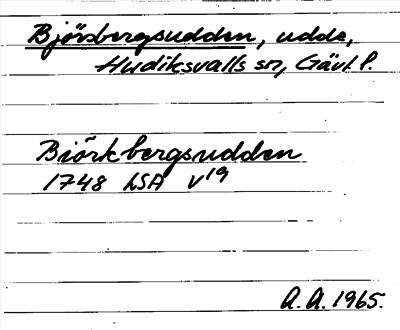 Björsbergsudden, udde,
Hudiksvalls sn, Gävl l.
Biörkbergsudden
1748 LSA V19
A.A. 1965.